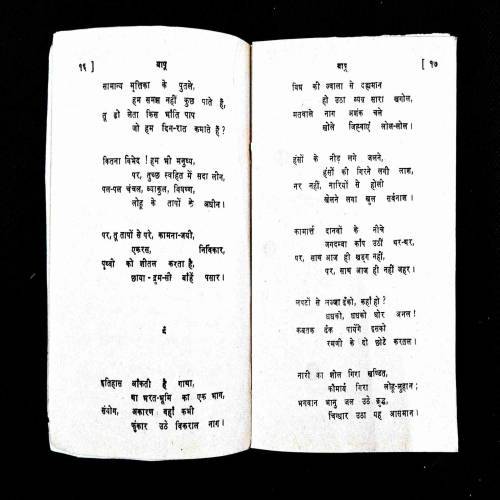 १६ ]
बापू
सामान्य मृत्तिका के पुतले,
हम समझ नहीं कुछ पाते हैं,
तू ढो लेता किस भाँति पाप
जो हम दिन-रात कमाते हैं?
कितना विभेद! हम भी मनुष्य,
पर, तुच्छ स्वहित में सदा लीन,
पल-पल चंचल, व्याकुल, विषण्ण,
लोहू के तापों के अधीन।
पर, तू तापों से परे, कामना-जयी,
एकरस, निर्विकार,
पृथ्वी को शीतल करता है,
छाया-द्रुम-सी बाँहें पसार।
इतिहास आँकती है गाथा,
था भरत-भूमि का एक भाग,
संयोग, अकारण वहाँ कभी
फुंकार उठे विकराल नाग।
बापू
[ १७
विष की ज्वाला से दह्यमान
हो उठा व्यग्र सारा खगोल,
मतवाले नाग अशंक चले
खोले जिह्वाएँ लोल-लोल।
हंसों के नीड़ लगे जलने,
हंसों की गिरने लगी लाश,
नर नहीं, नारियों से होली
खेलने लगा खुल सर्वनाश।
कामार्त्त दानवों के नीचे
जगदम्बा काँप उठीं थर-थर,
पर, साथ आज ही खड्ग नहीं,
पर, साथ आज ही नहीं जहर।
लपटों से लज्जा ढँको, कहाँ हो?
धधको, धधको घोर अनल!
कबतक ढँक पायेंगे इसको
रमणी के दो छोटे करतल।
नारी का शील गिरा खण्डित,
कौमार्य गिरा लोहू-लुहान;
भगवान भानु जल उठे क्रुद्ध,
चिंग्घार उठा यह आसमान।